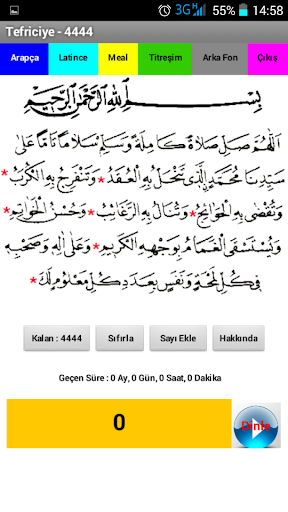 3G H 55% 14:58
Tefriciye - 4444
Arapça Latince Meal Titreşim Arka Fon Çıkış
بِسْمِ اللهِ الرَّحْمٰنِ الرَّحِيمِ
اَللّٰهُمَّ صَلِّ صَلَاةً كَامِلَةً وَسَلِّمْ سَلَامًا تَامًّا عَلٰى
سَيِّدِنَا مُحَمَّدٍ الَّذِي تَنْحَلُّ بِهِ الْعُقَدُ * وَتَنْفَرِجُ بِهِ الْكُرَبُ *
وَتُقْضٰى بِهِ الْحَوَائِجُ * وَتُنَالُ بِهِ الرَّغَائِبُ * وَحُسْنُ الْخَوَاتِمِ *
وَيُسْتَسْقَى الْغَمَامُ بِوَجْهِهِ الْكَرِيمِ * وَعَلٰى اٰلِهِ وَصَحْبِهِ
فِي كُلِّ لَمْحَةٍ وَنَفَسٍ بِعَدَدِ كُلِّ مَعْلُومٍ لَكَ *
Kalan : 4444 Sıfırla Sayı Ekle Hakkında
Geçen Süre : 0 Ay, 0 Gün, 0 Saat, 0 Dakika
0 Dinle